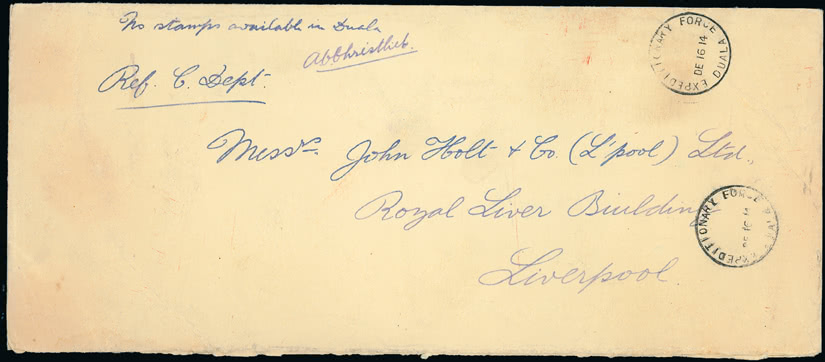 No stamps available in Duala
Ref. C. Dept.
Messrs. John Holt & Co. (L'pool) Ltd.,
Royal Liver Building
Liverpool.
EXPEDITIONARY FORCE DUALA
DE 16 14
EXPEDITIONARY FORCE DUALA
DE 16 14